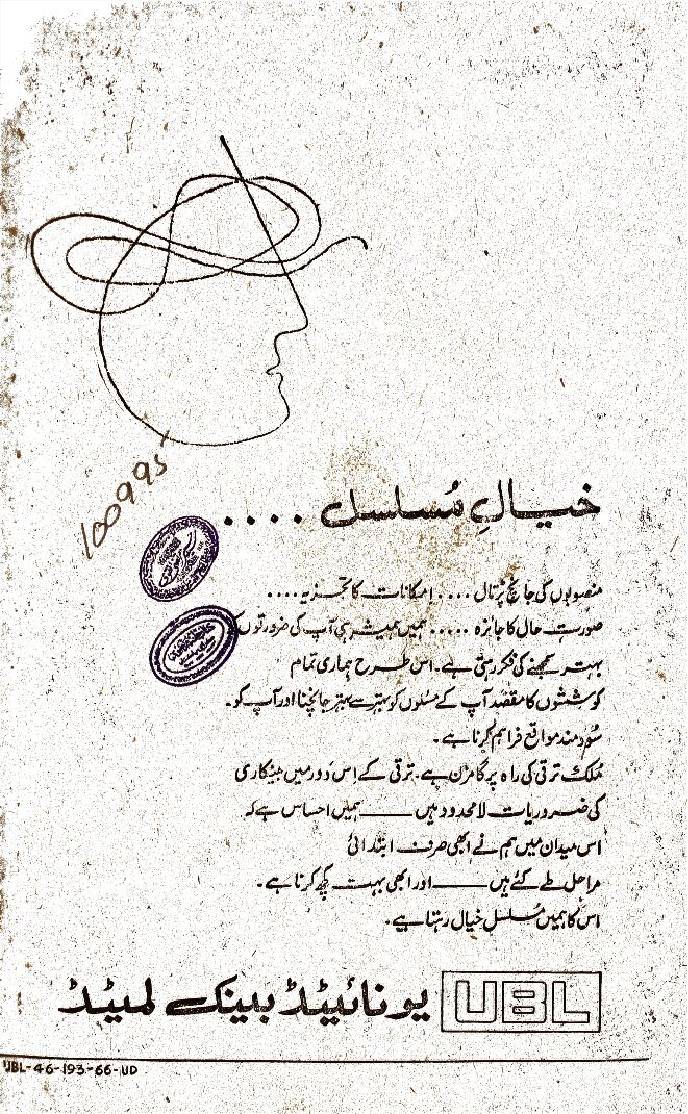 100995
خیالِ مُسلسل ....
منصوبوں کی جانچ پڑتال .... امکانات کا تجزیہ ....
صورت حال کا جائزہ ..... ہمیں ہمیشہ ہی آپ کی ضرورتوں کو
بہتر سمجھنے کی فکر رہتی ہے۔ اس طرح ہماری تمام
کوششوں کا مقصد آپ کے مسئلوں کو بہتر سے بہتر جانچنا اور آپ کو۔
سُودمند مواقع فراہم کرنا ہے۔
مُلک ترقی کی راہ پر گامزن ہے۔ ترقی کے اِس دَور میں بینکاری
کی ضروریات لامحدود ہیں —— ہمیں احساس ہے کہ
اس میدان میں ہم نے ابھی صرف ابتدائی
مراحل طے کئے ہیں —— اور ابھی بہت کچھ کرنا ہے۔
اس کا ہمیں مُسلسل خیال رہتا ہے۔
UBL یونائیٹڈ بینک لمیٹڈ
UBL-46-193-66-UD